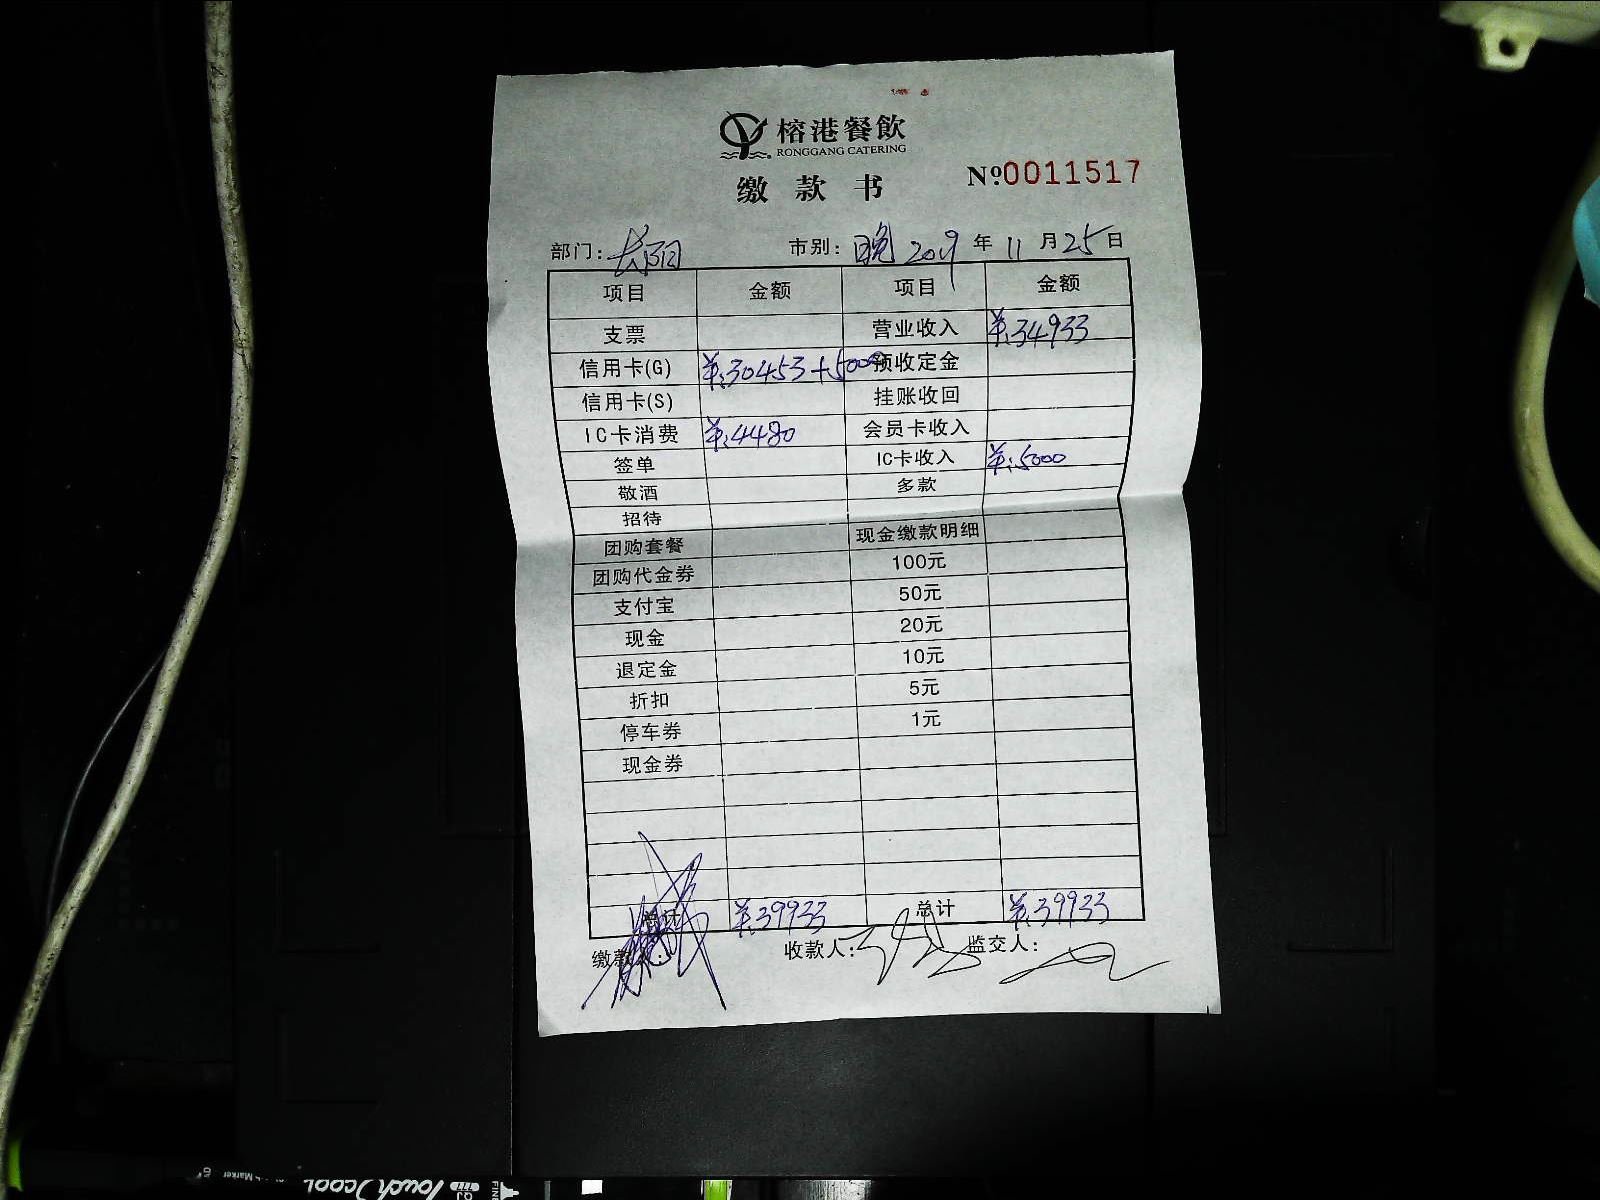 榕港餐飲
RONGGANG CATERING
缴款书
№0011517
部门:长阳 市别:晚 2019年11月25日
项目 金额 项目 金额
支票 营业收入 ¥:34933
信用卡(G) ¥:30453+5000 预收定金
信用卡(S) 挂账收回
IC卡消费 ¥:4480 会员卡收入
签单 IC卡收入 ¥:5000
敬酒 多款
招待
团购套餐 现金缴款明细
团购代金券 100元
支付宝 50元
现金 20元
退定金 10元
折扣 5元
停车券 1元
现金券
总计 ¥:39933 总计 ¥:39933
缴款 收款人: 监交人:
Touch COOL